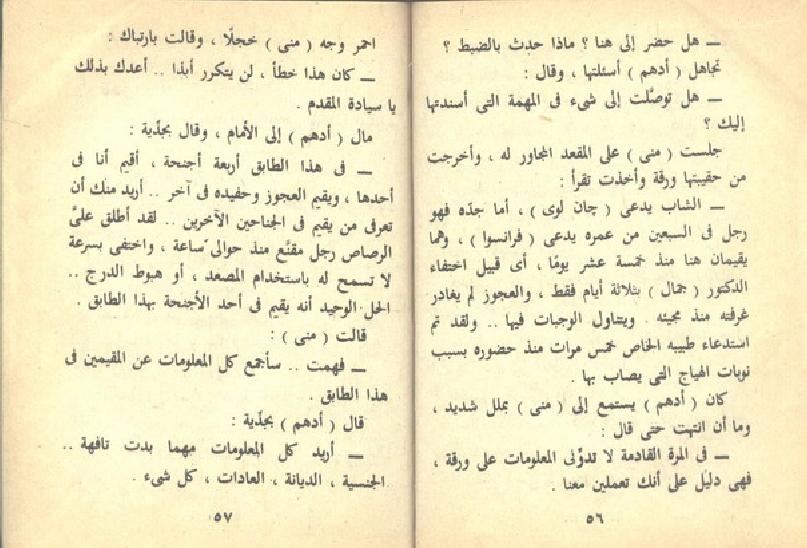 ـــ هل حضر إلى هنا ؟ ماذا حدث بالضبط ؟
تجاهل ( أدهم ) أسئلتها ، وقال :
ـــ هل توصَّلت إلى شىء فى المهمة التى أسندتها
إليك ؟
جلست ( منى ) على المقعد المجاور له ، وأخرجت
من حقيبتها ورقة وأخذت تقرأ :
ـــ الشاب يدعى ( چان لوى ) ، أما جدّه فهو
رجل فى السبعين من عمره يدعى ( فرانسوا ) ، وهما
يقيمان هنا منذ خمسة عشر يومًا ، أى قبيل اختفاء
الدكتور ( جمال ) بثلاثة أيام فقط ، والعجوز لم يغادر
غرفته منذ مجيئه . ويتناول الوجبات فيها .. ولقد تم
استدعاء طبيبه الخاص خمس مرات منذ حضوره بسبب
نوبات الهياج التى يصاب بها .
كان ( أدهم ) يستمع إلى ( منى ) بملل شديد ،
وما أن انتهت حتى قال :
ـــ فى المرة القادمة لا تدوِّنى المعلومات على ورقة ،
فهى دليل على أنك تعملين معنا .
٥٦
احمر وجه ( منى ) خجلًا ، وقالت بارتباك :
ـــ كان هذا خطأ ، لن يتكرر أبدًا .. أعدك بذلك
يا سيادة المقدم .
مال ( أدهم ) إلى الأمام ، وقال بجدِّية :
ـــ فى هذا الطابق أربعة أجنحة ، أقيم أنا فى
أحدها ، ويقيم العجوز وحفيده فى آخر .. أريد منك أن
تعرفى من يقيم فى الجناحين الآخرين .. لقد أطلق علىَّ
الرصاص رجل مقنَّع منذ حوالى ساعة ، واختفى بسرعة
لا تسمح له باستخدام المصعد ، أو هبوط الدرج ..
الحل الوحيد أنه يقيم فى أحد الأجنحة بهذا الطابق .
قالت ( منى ) :
ـــ فهمت .. سأجمع كل المعلومات عن المقيمين فى
هذا الطابق .
قال ( أدهم ) بجدِّية :
ـــ أريد كل المعلومات مهما بدت تافهة ..
الجنسية ، الديانة ، العادات ، كل شىء .
٥٧